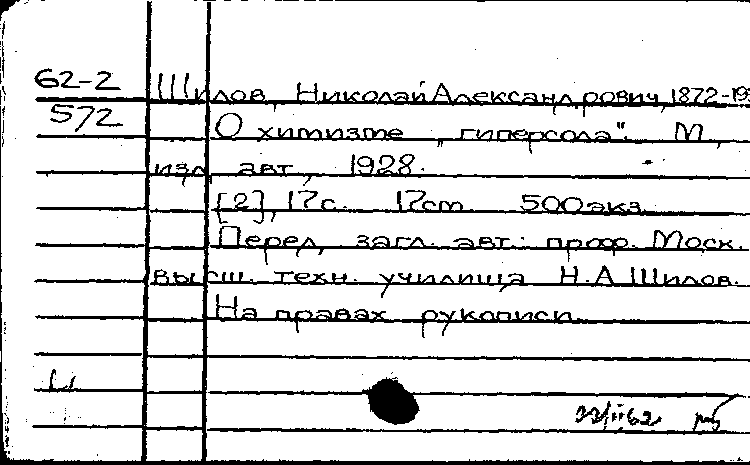 62-2
572
Шилов, Николай Александрович, 1872-19
О химизме "гиперсола". М.,
изд. авт., 1928.
[2], 17 с. 17 см. 500 экз.
Перед загл. авт.: проф. Моск.
высш. техн. училища Н.А. Шилов.
На правах рукописи.